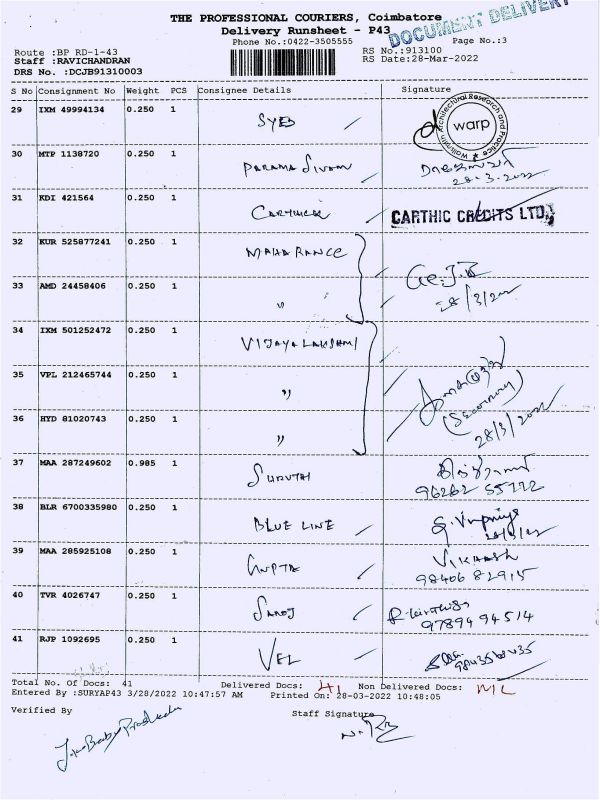 THE PROFESSIONAL COURIERS, Coimbatore
DOCUMENT DELIVERY
Delivery Runsheet - P43
Phone No.:0422-3505555 Page No.:3
Route :BP RD-1-43 RS No.:913100
Staff :RAVICHANDRAN RS Date:28-Mar-2022
DRS No. :DCJB91310003
S No Consignment No Weight PCS Consignee Details Signature
29 IXM 49994134 0.250 1 SYED
warp
30 MTP 1138720 0.250 1 PARAMA SIVAM
28-3-2022
31 KDI 421564 0.250 1 CARTHICK CARTHIC CREDITS LTD.,
32 KUR 525877241 0.250 1 MAHARANCE
33 AMD 24458406 0.250 1 "
28/3/2022
34 IXM 501252472 0.250 1 VIJAYALAKSHMI
35 VPL 212465744 0.250 1 "
(Security)
36 HYD 81020743 0.250 1 "
28/3/2022
37 MAA 287249602 0.985 1 SURUTHI
96262 55722
38 BLR 6700335980 0.250 1 BLUE LINE
39 MAA 285925108 0.250 1 GUPTA VIKAASH
98406 82915
40 TVR 4026747 0.250 1 SAROJ
97894 94514
41 RJP 1092695 0.250 1 VEL
Total No. Of Docs: 41 Delivered Docs: 41 Non Delivered Docs: NIL
Entered By :SURYAP43 3/28/2022 10:47:57 AM Printed On: 28-03-2022 10:48:05
Verified By Staff Signature